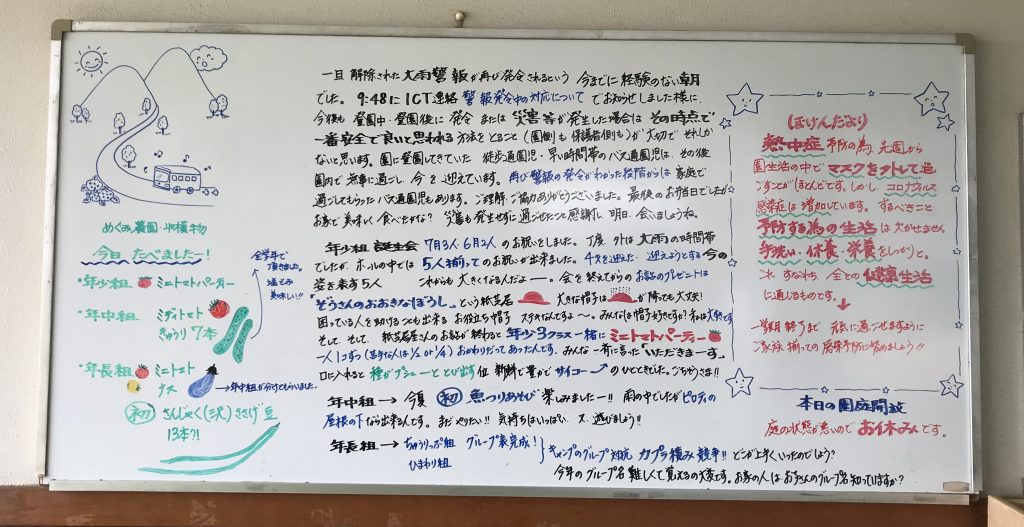 めぐみ農園・収穫物
今日たべましたー！
全学年で
頂きました。
塩もみ
美味しい!!
・年少組 ミニトマトパーティー
・年中組 ミディトマト
きゅうり 7本
・年長組 ミニトマト
ナス →年中組が分けてもらいました。
初 さんじゃく(三尺)ささげ豆
13本?!
一旦 解除された 大雨警報が再び発令されるという 今までに経験のない朝
でした。 9:48に ICT連絡 警報発令中の対応について でお知らせしました様に、
今後も 登園中・登園後に 発令 または 災害等が発生した場合は その時点で
一番安全で良いと思われる 方法をとること(園側も 保護者側も)が大切で それしか
ないと思います。園に登園してきていた 徒歩通園児・早い時間帯のバス通園児は、その後
園内で 無事に過ごし、今を 迎えています。再び警報の発令がわかった段階からは 家庭で
過ごしてもらったバス通園児もあります。ご理解・ご協力ありがとうございました。最後のお弁当日でしたが
お家で美味しく食べたかな? 災害も発生せずに過ごせたこと感謝し 明日、会いましょうね。
年少組 誕生会 7月3人・6月2人 のお祝いをしました。丁度 外は 大雨の時間帯
でしたが、ホールの中では 5人揃ってのお祝いが出来ました。 4才を迎えた・迎えようとする今の
姿を表す5人 これからも 大きくなるんだよー。会を終えてからの お話のプレゼントは
「ぞうさんのおおきなぼうし」という紙芝居 大きな帽子は が降っても大丈夫!
困っている人を助けることも出来る お役立ち帽子 ステキなんですよ～。みんなは帽子好きですか? 私は大好きです
そして、そして 紙芝居屋さんのお話が終わると 年少3クラス一緒に ミニトマトパーティー
一人1コずつ(苦手な人は1/2 or 1/4) おかわりだってあったんです。みんな一斉に言った"いただきまーす"。
口に入れると 種がプシューととび出す位 新鮮で豊かで サイコー のひとときでした。ごちそうさま!!
年中組 → 今夏 初 魚つりあそび 楽しみましたー!! 雨の中でしたがピロティの
屋根の下なら出来るんです。まだ やりたい!! 気持ちはいっぱい 又、遊びましょう!!
年長組 → ちゅうりっぷ組 グループ表完成!
ひまわり組
キャンプのグループ対抗 カプラ積み競争!! どこが上手くいったのでしょう?
今年のグループ名 難しくて覚えるの大変です。お家の人は お子さんのグループ名知っていますか?
(ほけんだより)
熱中症予防の為、先週から
園生活の中で マスクを外して過
ごすことがほとんどです。しかし、コロナウイルス
感染症は 増加しています。するべきこと
予防する為の生活は欠かせません
手洗い・休養・栄養をしっかりと。
これ すなわち、全ての健康生活
に通じるものです。
一学期 終了まで 元気に過ごせますように
ご家族 揃っての 感染予防に努めましょう!!
本日の園庭開放
庭の状態が悪いので お休みです。